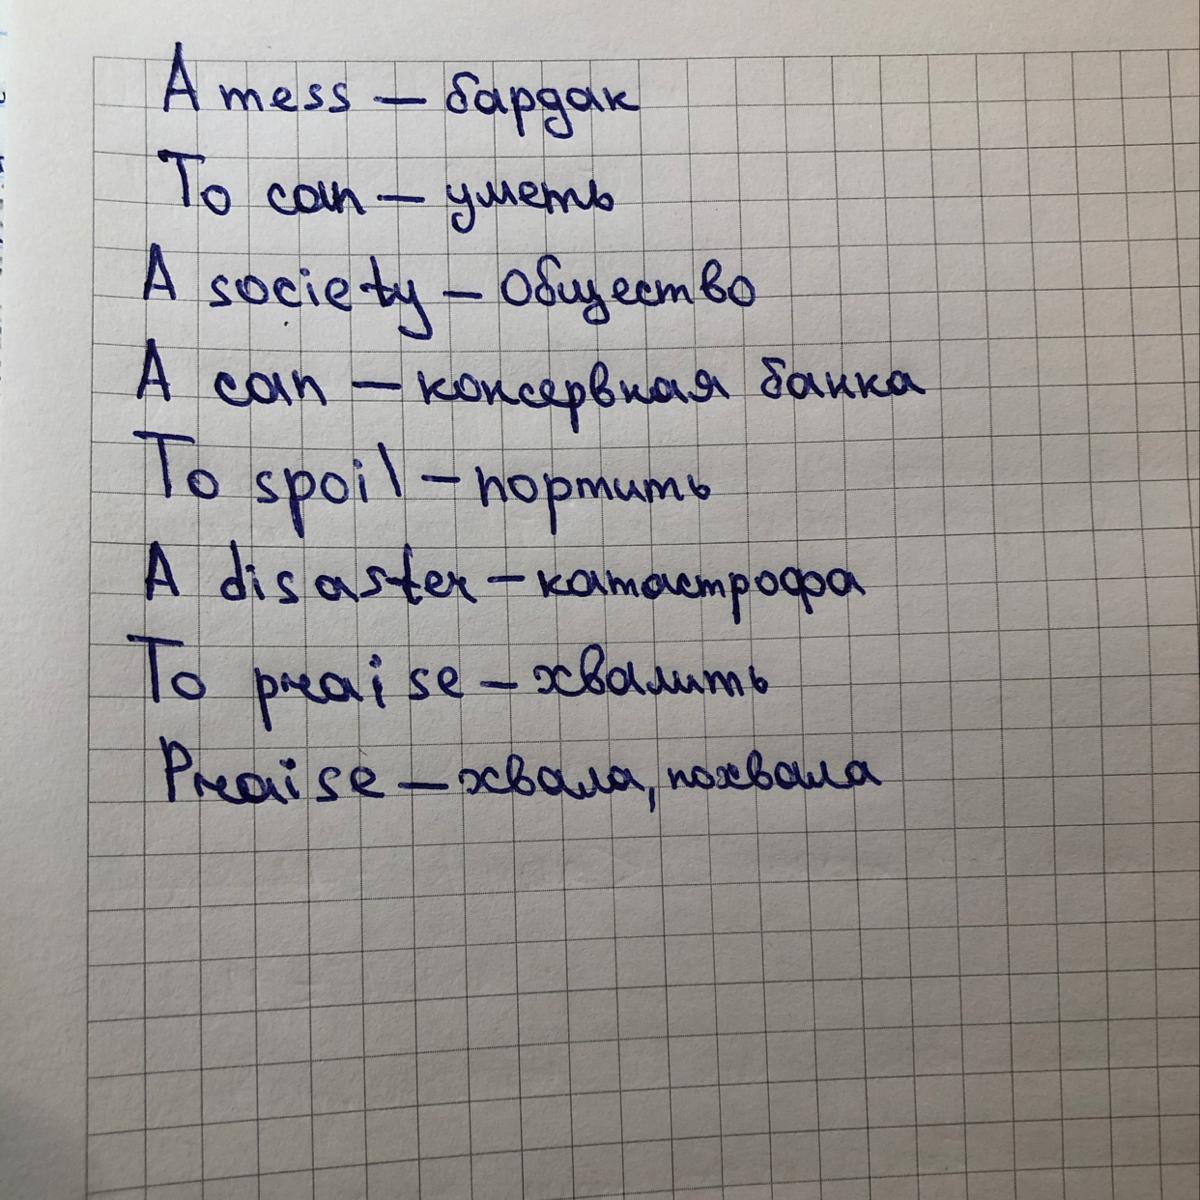 A mess — бардак
To can — уметь
A society — общество
A can — консервная банка
To spoil — портить
A disaster — катастрофа
To praise — хвалить
Praise — хвала, похвала